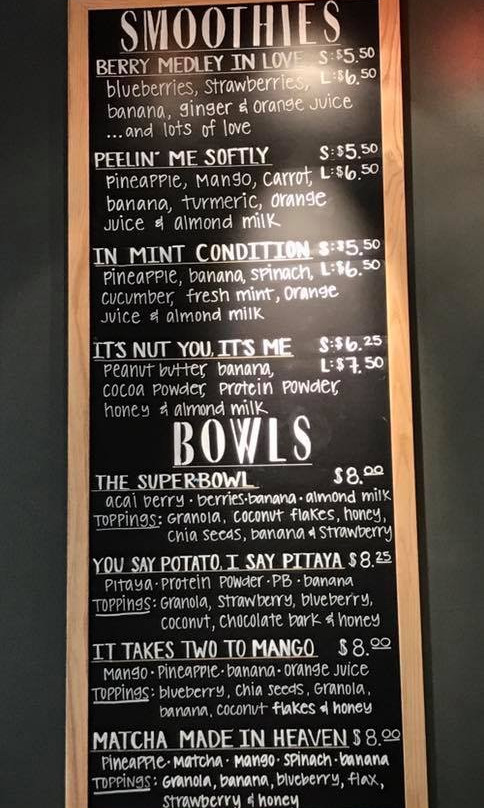 SMOOTHIES
BERRY MEDLEY IN LOVE S:$5.50
blueberries, strawberries, L:$6.50
banana, ginger & orange juice
...and lots of love
PEELIN' ME SOFTLY S:$5.50
Pineapple, Mango, carrot, L:$6.50
banana, turmeric, orange
juice & almond milk
IN MINT CONDITION S:$5.50
Pineapple, banana, spinach, L:$6.50
cucumber, fresh mint, orange
juice & almond milk
IT'S NUT YOU, IT'S ME S:$6.25
Peanut butter, banana, L:$7.50
cocoa powder, Protein Powder,
honey & almond milk
BOWLS
THE SUPERBOWL $8.00
acai berry · berries·banana·almond milk
TOPPINGS: Granola, coconut flakes, honey,
chia seeds, banana & strawberry
YOU SAY POTATO, I SAY PITAYA $8.25
Pitaya·Protein Powder·PB·banana
TOPPINGS: Granola, strawberry, blueberry,
coconut, chocolate bark & honey
IT TAKES TWO TO MANGO $8.00
Mango·Pineapple·banana·orange juice
TOPPINGS: blueberry, chia seeds, Granola,
banana, coconut flakes & honey
MATCHA MADE IN HEAVEN $8.00
Pineapple·Matcha·Mango·spinach·banana
TOPPINGS: Granola, banana, blueberry, flax,
strawberry & honey